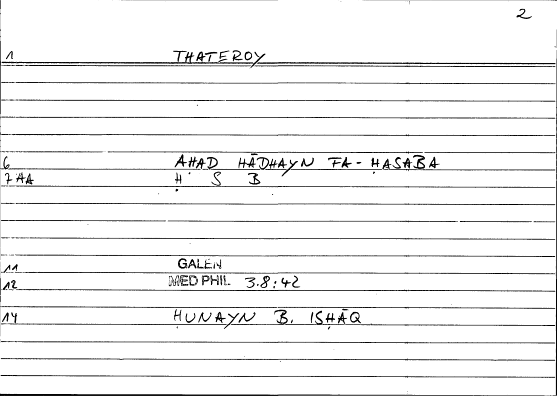 2
1 THATEROY
6 AḤAD HĀDHAYN FA-ḤASABA
7AA Ḥ S B
11 GALEN
12 MED PHIL 3.8:42
14 ḤUNAYN B. ISḤĀQ